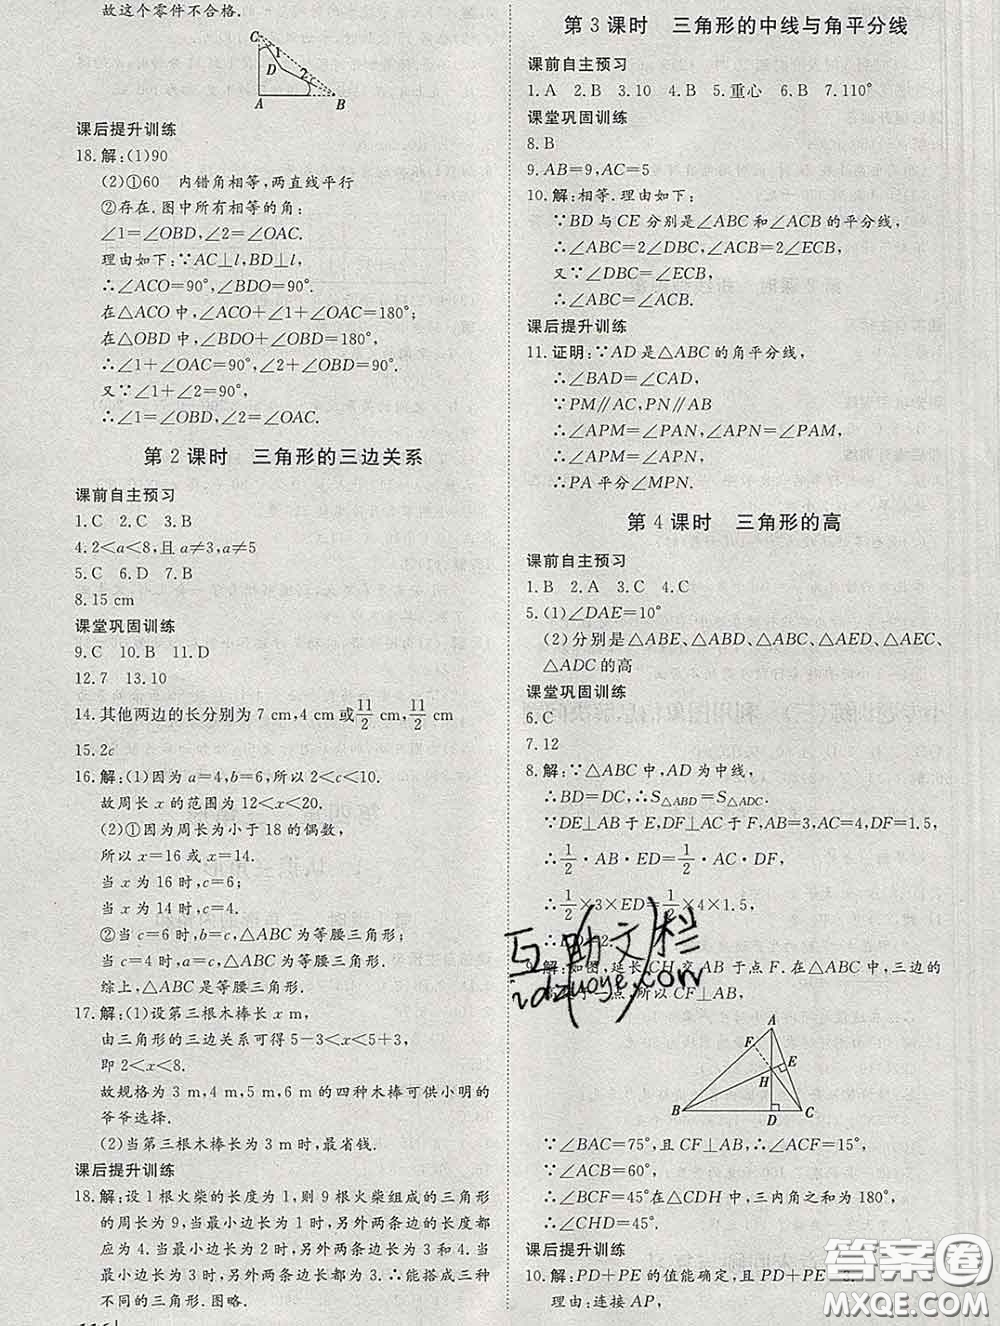 故这个零件不合格.
C
1
D
2
A
B
课后提升训练
18.解:(1)90
(2)①60 内错角相等,两直线平行
②存在.图中所有相等的角:
∠1=∠OBD,∠2=∠OAC.
理由如下:∵AC⊥l,BD⊥l,
∴∠ACO=90°,∠BDO=90°.
在△ACO中,∠ACO+∠1+∠OAC=180°;
在△OBD中,∠BDO+∠2+∠OBD=180°,
∴∠1+∠OAC=90°,∠2+∠OBD=90°.
又∵∠1+∠2=90°,
∴∠1=∠OBD,∠2=∠OAC.
第2课时 三角形的三边关系
课前自主预习
1.C 2.C 3.B
4.2<a<8,且a≠3,a≠5
5.C 6.D 7.B
8.15 cm
课堂巩固训练
9.C 10.B 11.D
12.7 13.10
14.其他两边的长分别为7 cm,4 cm或11/2 cm,11/2 cm
15.2c
16.解:(1)因为a=4,b=6,所以2<c<10.
故周长x的范围为12<x<20.
(2)①因为周长为小于18的偶数,
所以x=16或x=14.
当x为16时,c=6;
当x为14时,c=4.
②当c=6时,b=c,△ABC为等腰三角形;
当c=4时,a=c,△ABC为等腰三角形.
综上,△ABC是等腰三角形.
17.解:(1)设第三根木棒长x m,
由三角形的三边关系可得5-3<x<5+3,
即2<x<8.
故规格为3 m,4 m,5 m,6 m的四种木棒可供小明的
爷爷选择.
(2)当第三根木棒长为3 m时,最省钱.
课后提升训练
18.解:设1根火柴的长度为1,则9根火柴组成的三角形
的周长为9,当最小边长为1时,另外两条边的长度都
应为4.当最小边长为2时,另外两条边长为3和4.当
最小边长为3时,另外两条边长为3.∴能搭成三种
不同的三角形.图略.
第3课时 三角形的中线与角平分线
课前自主预习
1.A 2.B 3.10 4.B 5.重心 6.B 7.110°
课堂巩固训练
8.B
9.AB=9,AC=5
10.解:相等.理由如下:
∵BD与CE分别是∠ABC和∠ACB的平分线,
∴∠ABC=2∠DBC,∠ACB=2∠ECB,
又∵∠DBC=∠ECB,
∴∠ABC=∠ACB.
课后提升训练
11.证明:∵AD是△ABC的角平分线,
∴∠BAD=∠CAD,
∵PM∥AC,PN∥AB
∴∠APM=∠PAN,∠APN=∠PAM,
∴∠APM=∠APN,
∴PA平分∠MPN.
第4课时 三角形的高
课前自主预习
1.B 2.A 3.C 4.C
5.(1)∠DAE=10°
(2)分别是△ABE、△ABD、△ABC、△AED、△AEC、
△ADC的高
课堂巩固训练
6.C
7.12
8.解:∵△ABC中,AD为中线,
∴BD=DC,∴S△ABD=S△ADC.
∵DE⊥AB于E,DF⊥AC于F,AB=3,AC=4,DF=1.5,
∴1/2·AB·ED=1/2·AC·DF,
∴1/2×3×ED=1/2×4×1.5,
∴ED=2.
9.解:如图,延长CH交AB于点F.在△ABC中,三边的
高交于一点,所以CF⊥AB,
A
F
E
H
B
D
C
∵∠BAC=75°,且CF⊥AB,∴∠ACF=15°,
∵∠ACB=60°,
∴∠BCF=45°在△CDH中,三内角之和为180°,
∴∠CHD=45°.
课后提升训练
10.解:PD+PE的值能确定,且PD+PE=3.
理由:连接AP,
互助文档
答案圈
MXQE.COM